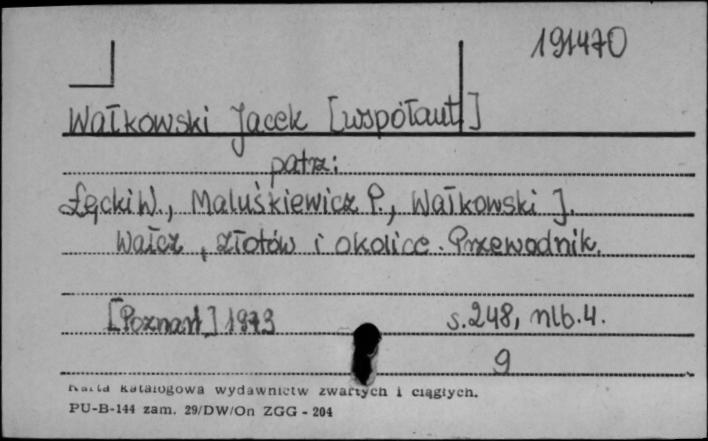 191470
Wałkowski Jacek [współaut.]
patrz:
Łęcki W., Maluśkiewicz P., Wałkowski J.
Wałcz, Złotów i okolice. Przewodnik.
[Poznań] 1973 s. 248, nlb. 4.
9
Karta katalogowa wydawnictw zwartych i ciągłych.
PU-B-144 zam. 29/DW/On ZGG - 204